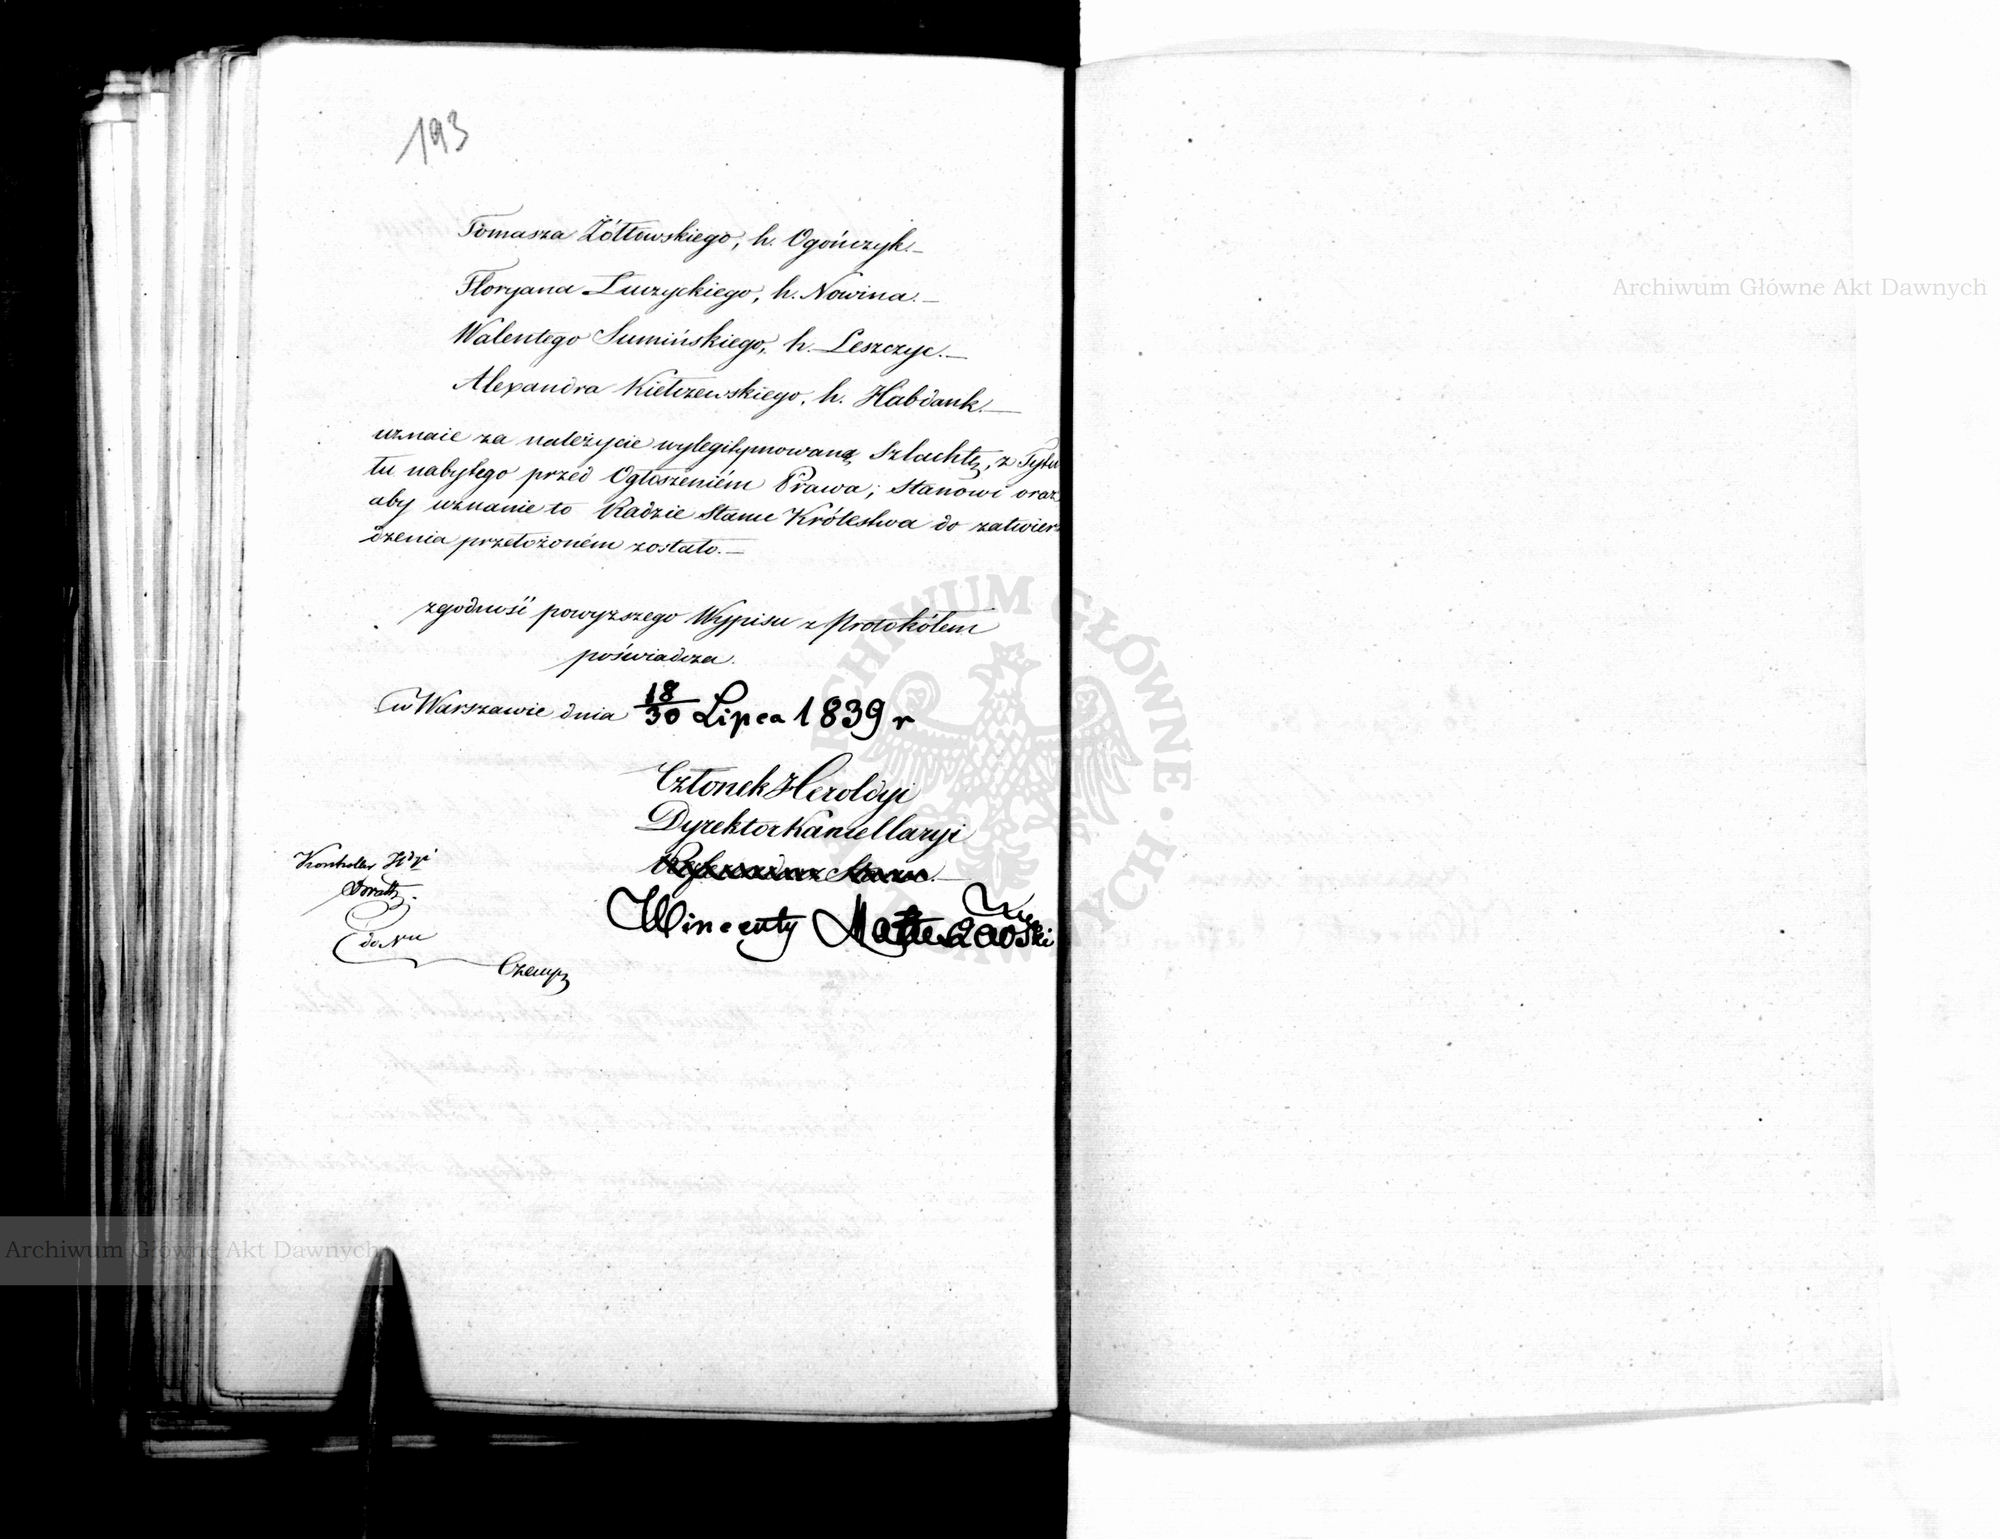 193
Tomasza Żółtowskiego, h. Ogończyk.—
Floryana Łuczyckiego, h. Nowina.—
Walentego Sumińskiego, h. Leszczyc.—
Alexandra Kiełczewskiego, h. Habdank.—
uznaie za należycie wylegitymowaną Szlachtę, z Tytu
łu nabytego przed Ogłoszeniém Prawa; stanowi oraz
aby uznanie to Radzie Stanu Królestwa do zatwier
dzenia przełożoném zostało.—
zgodność powyższego Wypisu z Protokółem
poświadcza.
w Warszawie dnia 18/30 Lipca 1839 r
Członek Heroldyi
Dyrektor Kancellaryi
Referendarz Stanu.—
Wincenty
Kontroller
do Nru
Archiwum Główne Akt Dawnych
Archiwum Główne Akt Dawnych
ARCHIWUM GŁÓWNE AKT DAWNYCH